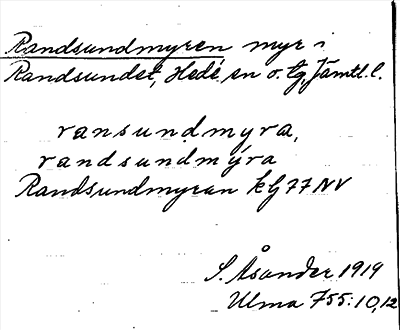 Randsundmyren myr i
Randsundet, Hede sn o. tg, Jämtl. l.
ransundmyra,
randsundmýra
Randsundmyran kbl 77 NV
S. Åsander 1919
Ulma 755:10,12